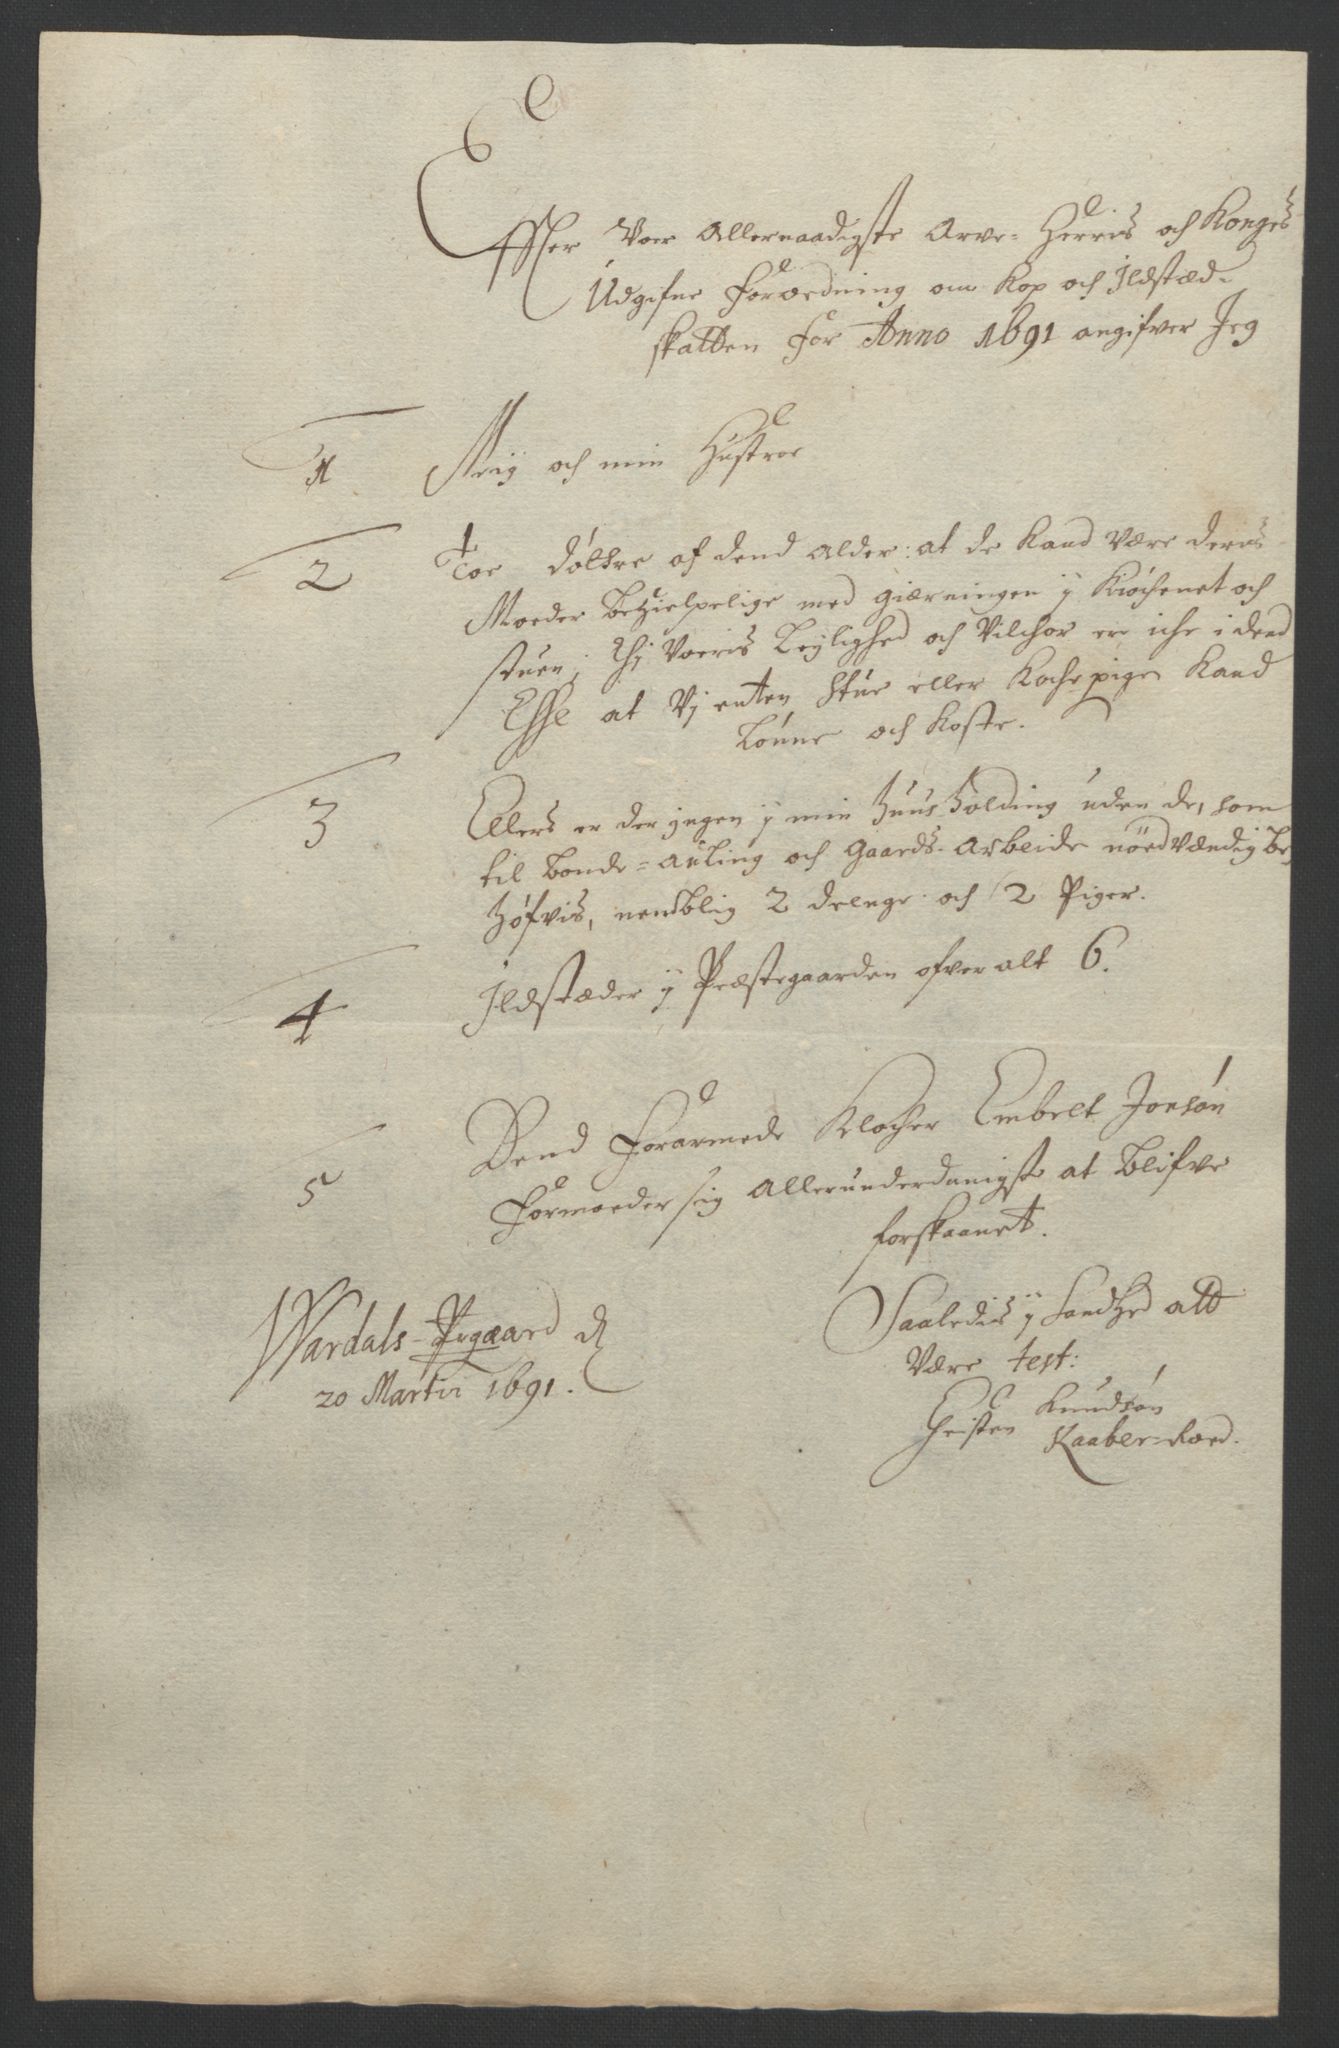 Effter Voer Allernaadigste Arve-Herris och Konges
Udgifne Forordning om Kop och Ildstæd-
skatten for Anno 1691 angifver Jeg
1 Meig och min Hustroe
2 Toe døttre af dend alder: at de kand være deres
Moeder behielpelige med gierningen ÿ Kiöchenet och
stuen; Thj voeris leylighed och Vilchor er iche i dend
Esse at Vj enten stue eller Koche pige kand
lönne och koste.
3 Ellers er der jngen ÿ min huusholding uden de, som
til bonde-auling och Gaards-Arbeide nödvændig be-
höfvis, nemblig 2 drenge och 2 Piger.
4 Ildstæder ÿ Præstegaarden ofver alt 6.
5 Dend forarmede Klocher Embelt Jonsøn
formoeder sig allerunderdanigst at blifve
forskaanet.
Saaledis ÿ Sandhed att
Være test:
Christen Knudsøn
Kaaber-Roed.
Wardals-Prgaard d
20 Martii 1691.